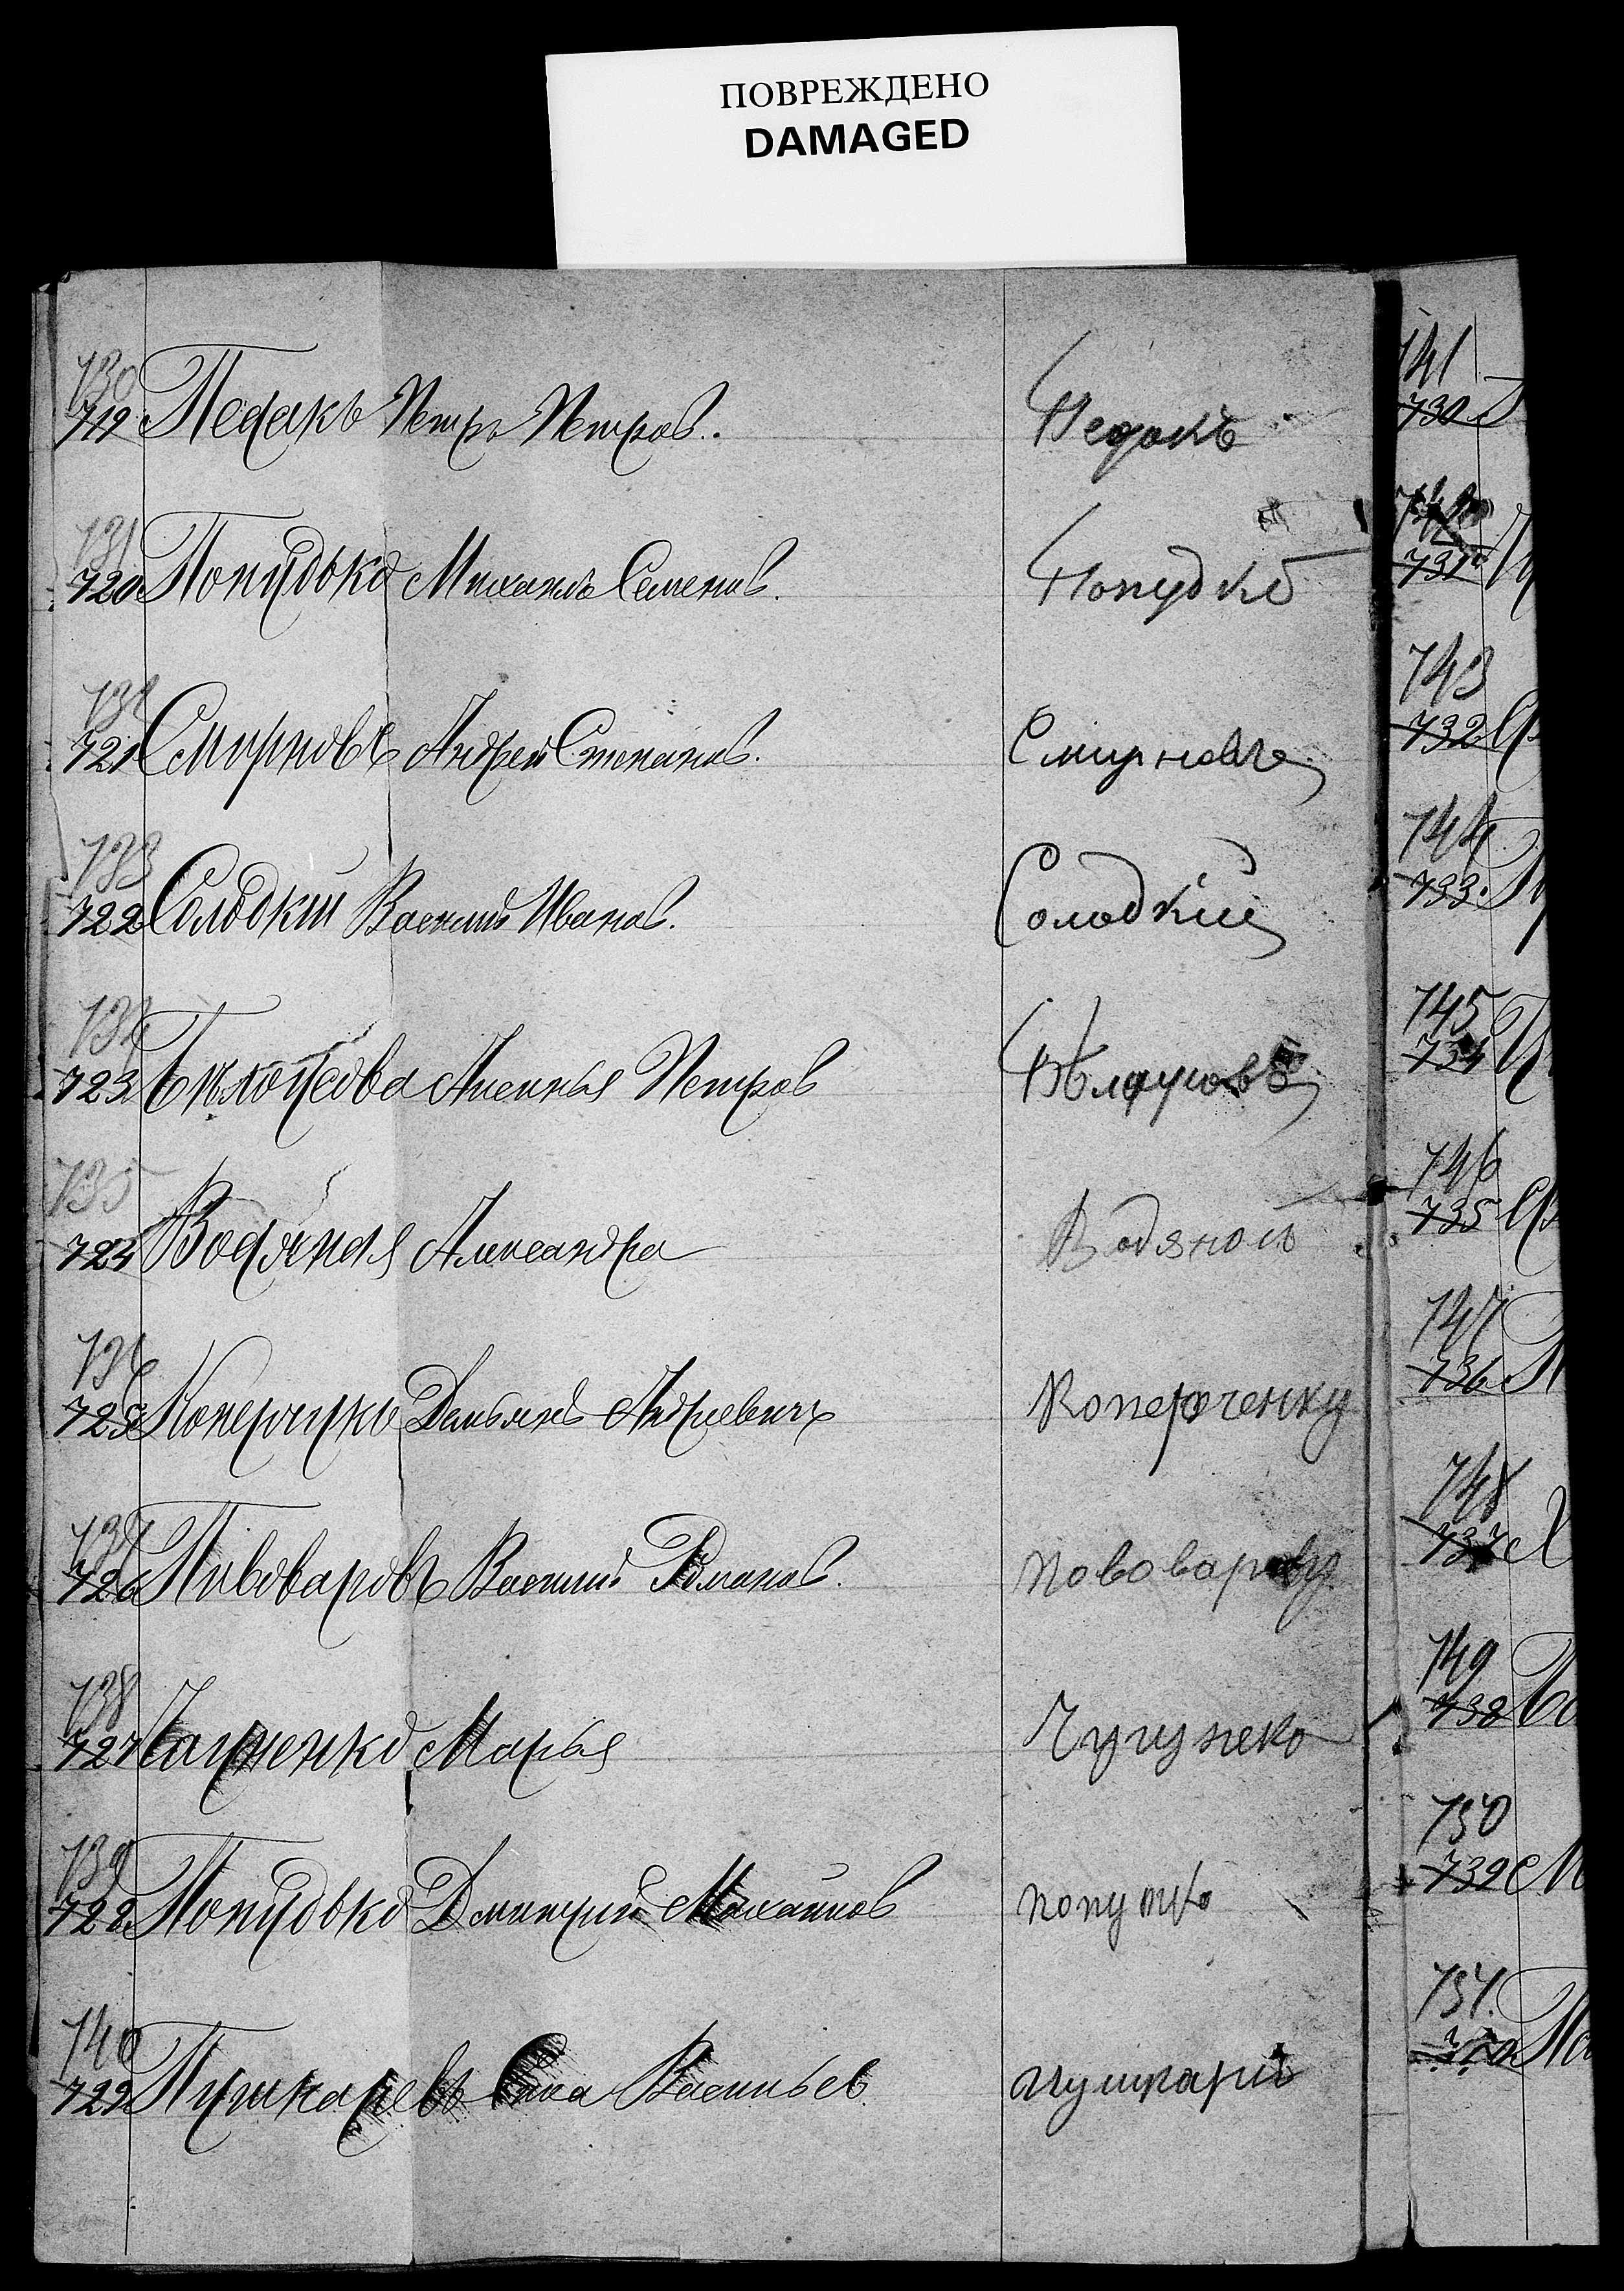 ПОВРЕЖДЕНО
DAMAGED
730
719 Педакъ Петръ Петров. Педакъ
731
720 Попудько Михаилъ Семенов. Попудко
732
721 Смирновъ Андрей Степанов. Смирновъ
733
722 Солодкий Василий Иванов. Солодкий
734
723 Бѣлоусова Аксинья Петров
735
724 Водяная Александра Водяной
736
725 Демьянъ Андреевичъ Коперченку
737
726 Пивоваровъ Василий Романов. Пововарову
738
727 Марья
739
728 Попудько Дмитрий Михайлов попутко
740
729 Пушкаревъ Васильев. пушкарь
141
730
731
743
732
744
733
745
734
746
735
747
736
748
737
749
738
750
739 М
751